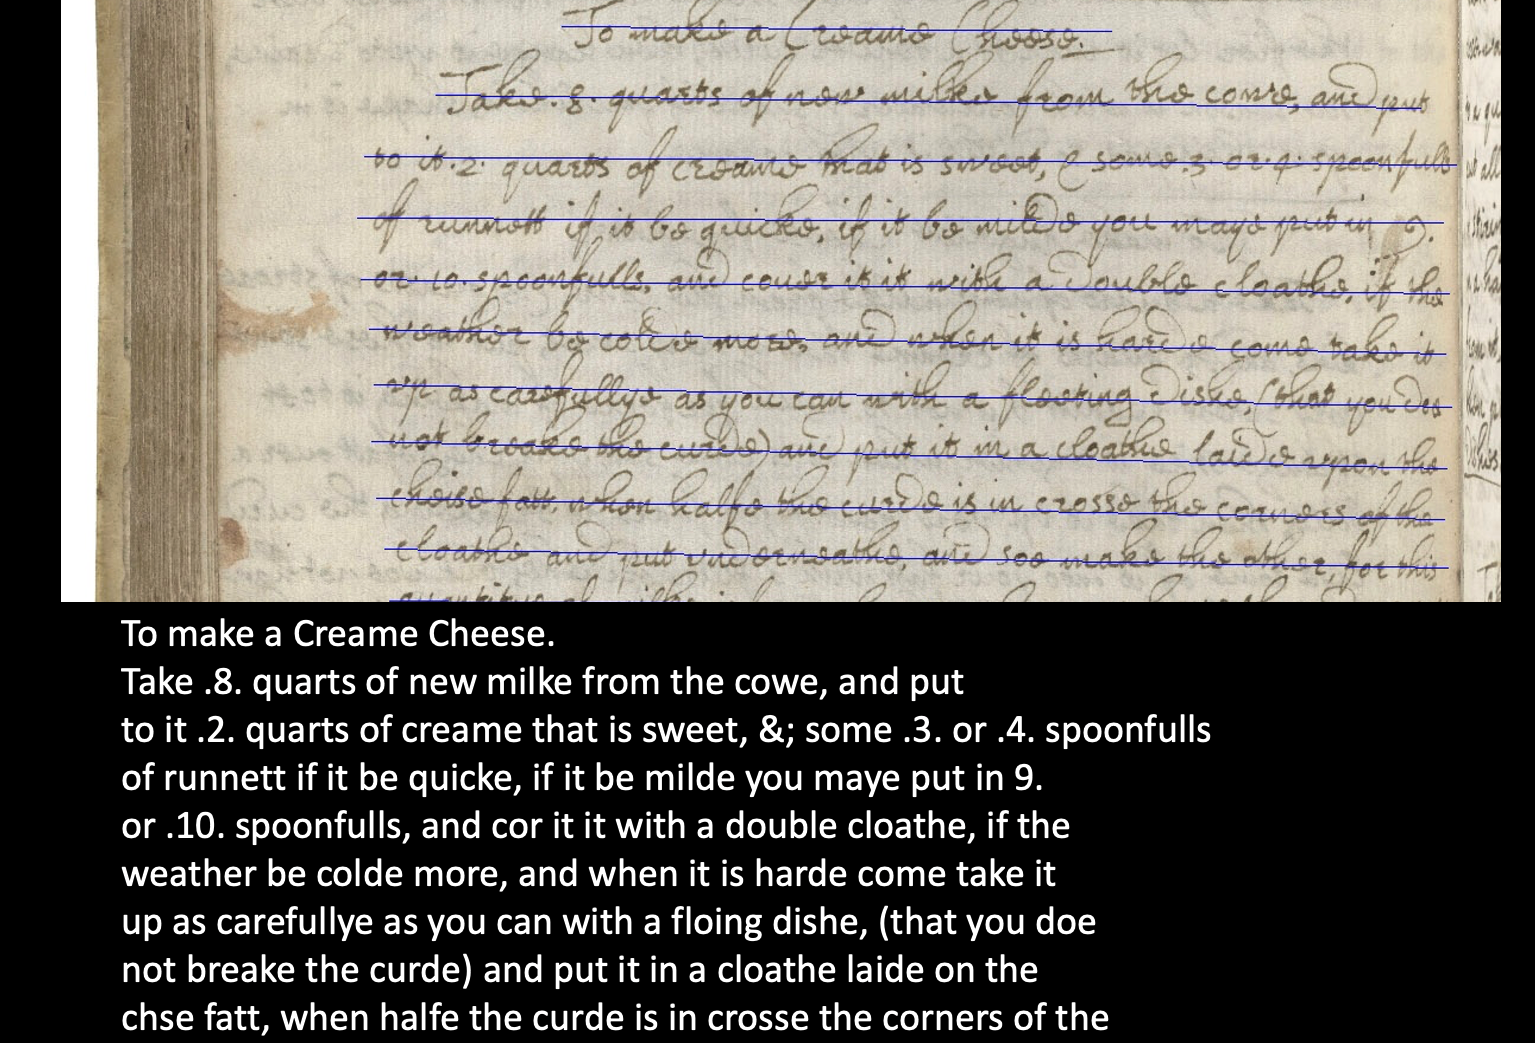 To make a Creame Cheese.
Take .8. quarts of new milke from the cowe, and put
to it .2. quarts of creame that is sweet, & some .3. or .4. spoonfulls
of runnett if it be quicke, if it be milde you maye put in 9.
or .10. spoonfulls, and couer it it with a double cloathe, if the
weather be colde more, and when it is harde come take it
up as carefullye as you can with a fleeting dishe, (that you doe
not breake the curde) and put it in a cloathe laide upon the
cheise fatt, when halfe the curde is in crosse the corners of the
cloathe and put underneathe, and soe make the other, for this
To make a Creame Cheese.
Take .8. quarts of new milke from the cowe, and put
to it .2. quarts of creame that is sweet, &; some .3. or .4. spoonfulls
of runnett if it be quicke, if it be milde you maye put in 9.
or .10. spoonfulls, and cor it it with a double cloathe, if the
weather be colde more, and when it is harde come take it
up as carefullye as you can with a floing dishe, (that you doe
not breake the curde) and put it in a cloathe laide on the
chse fatt, when halfe the curde is in crosse the corners of the